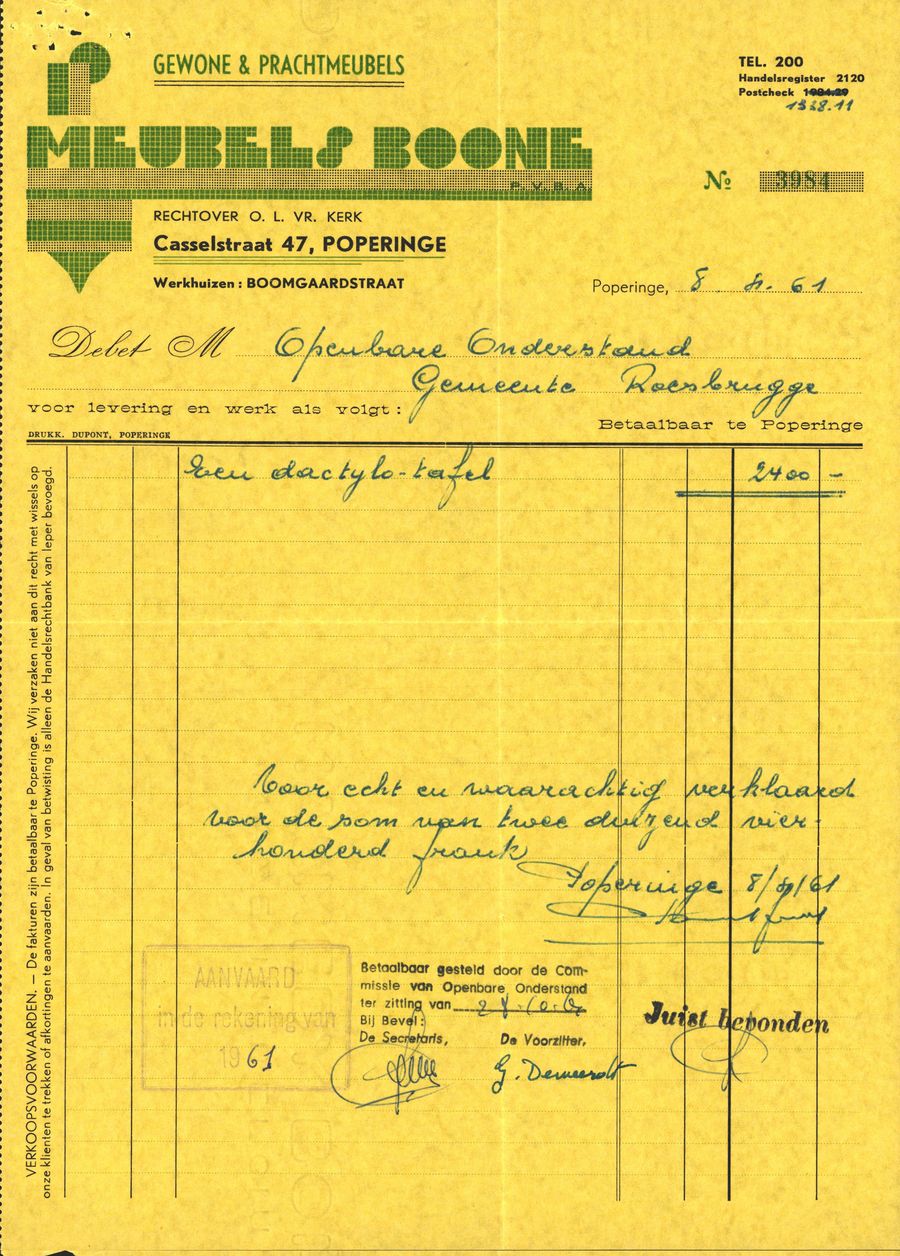 GEWONE & PRACHTMEUBELS
TEL. 200
Handelsregister 2120
Postcheck 1984.29
1328.11
MEUBELS BOONE
P.V.B.A
No 3984
RECHTOVER O. L. VR. KERK
Casselstraat 47, POPERINGE
Werkhuizen : BOOMGAARDSTRAAT
Poperinge, 8. 8. 61
Debet M Openbare Onderstand
Gemeente Roesbrugge
voor levering en werk als volgt :
Betaalbaar te Poperinge
DRUKK. DUPONT, POPERINGE
Een dactylo-tafel 2400 -
Voor echt en waarachtig verklaard
voor de som van twee duizend vier-
honderd frank
Poperinge 8/8/61
AANVAARD
in de rekening van
1961
Betaalbaar gesteld door de Com-
missie van Openbare Onderstand
ter zitting van
Bij Bevel :
De Secretaris, De Voorzitter,
G. Demeerdt
Juist bevonden
VERKOOPSVOORWAARDEN. — De fakturen zijn betaalbaar te Poperinge. Wij verzaken niet aan dit recht met wissels op
onze klienten te trekken of afkortingen te aanvaarden. In geval van betwisting is alleen de Handelsrechtbank van Ieper bevoegd.